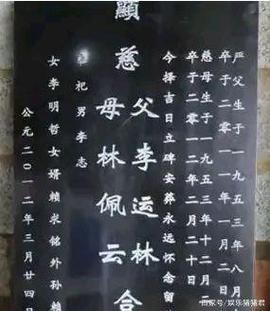 严父生于一九五三年八月
卒于二零一一年一月二
慈母生于一九五三年十二月二
卒于二零一二年二月二十日
今择吉日立碑安葬永远怀念留
顯慈
父李运林合
母林佩云
祀男李志
女李明哲女婿賴求銘外孙賴
公元二0一二年三月廿四日
百家号/娱乐猪猪君